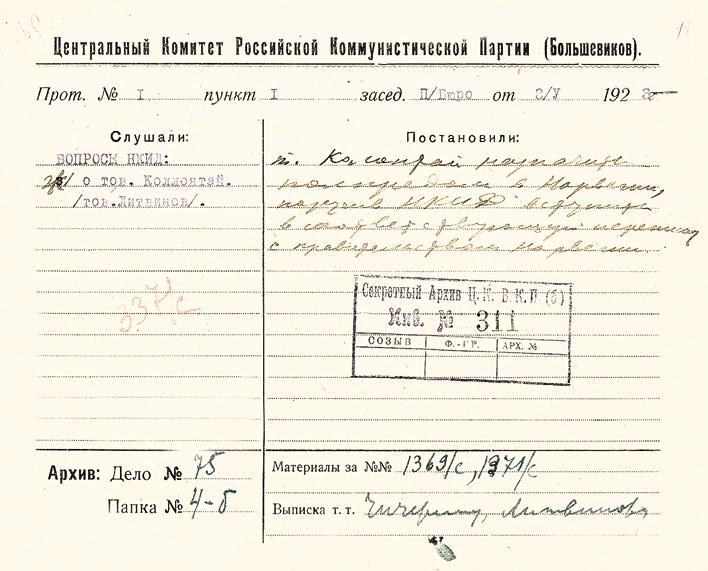 Центральный Комитет Российской Коммунистической Партии (Большевиков).
Прот. № I пункт I засед. П/Бюро от 2/У 1923
Слушали:
ВОПРОСЫ НКИД:
о тов. Коллонтай.
/тов.Литвинов/.
337/с
Постановили:
т. Колонтай назначить
полпредом в Норвегии,
поручив НКИД вступить
в соответствующую переписку
с правительством Норвегии.
Секретный Архив Ц. К. В. К. П (б)
Инв. № 311
СОЗЫВ Ф.-ГР. АРХ. №
Архив: Дело № 75
Папка № 4-б
Материалы за №№ 1369/с, 1371/с
Выписка т. т. Чичерину, Литвинову